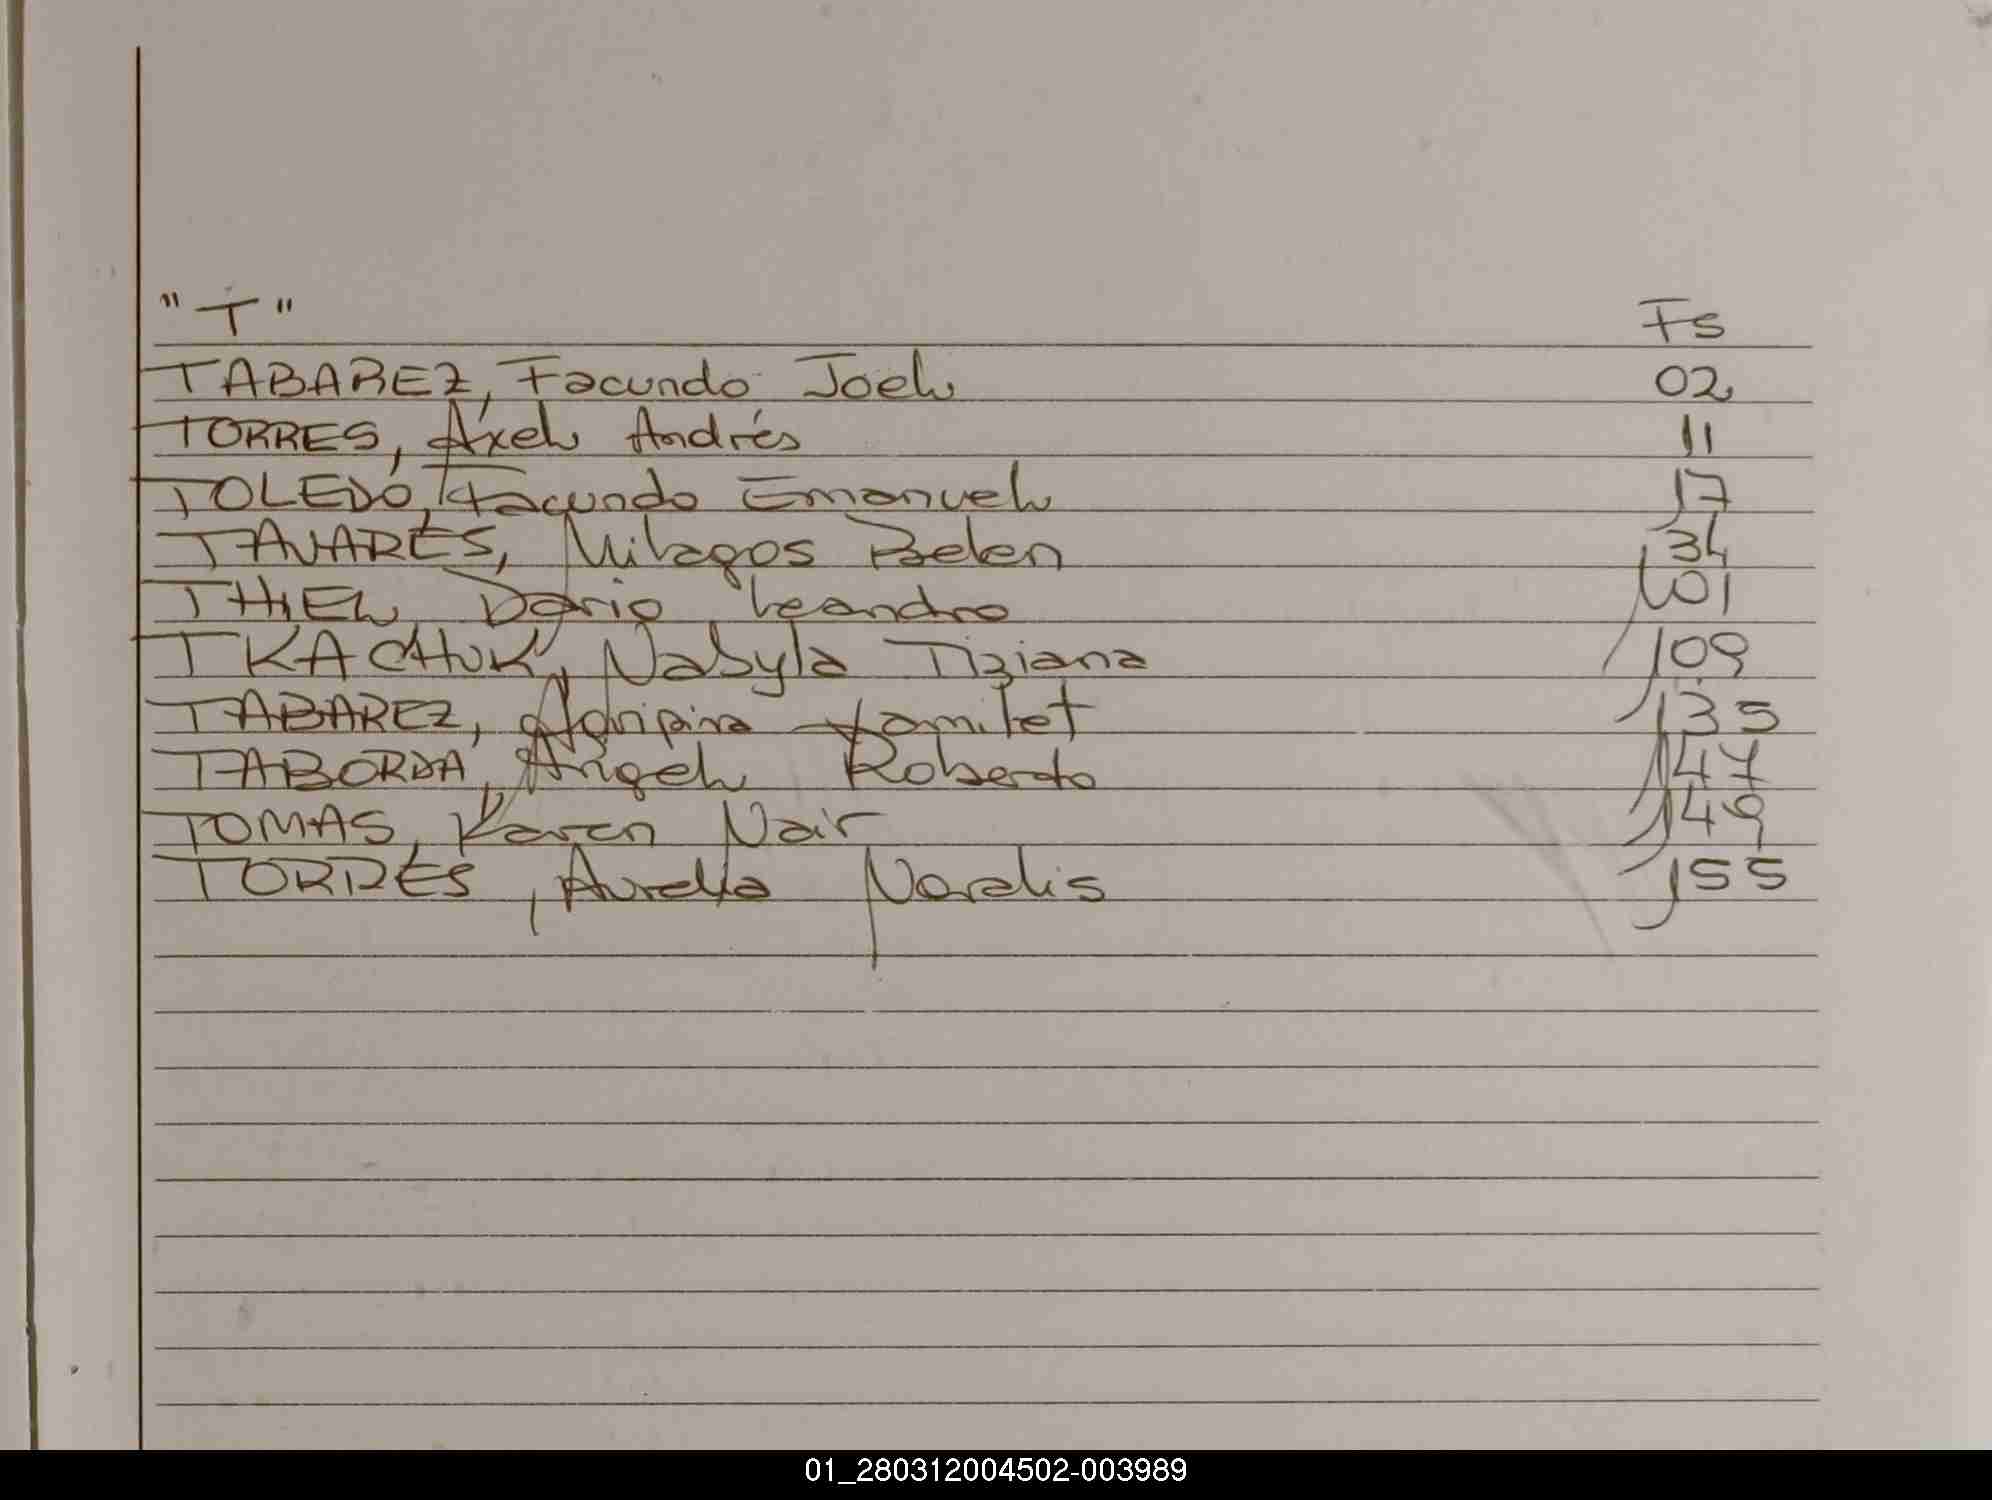 "T" Fs
TABAREZ, Facundo Joel 02
TORRES, Áxel Andrés 11
TOLEDO, Facundo Emanuel 17
TAVARES, Milagos Belen 34
THIEL, Dario Leandro 101
TKACHUK, Nabyla Tiziana 109
TABAREZ, Agripina Yamilet 135
TABORDA, Angel Roberto 147
TOMAS, Karen Nair 149
TORRES, Aurelia Noralis 155
01_280312004502-003989